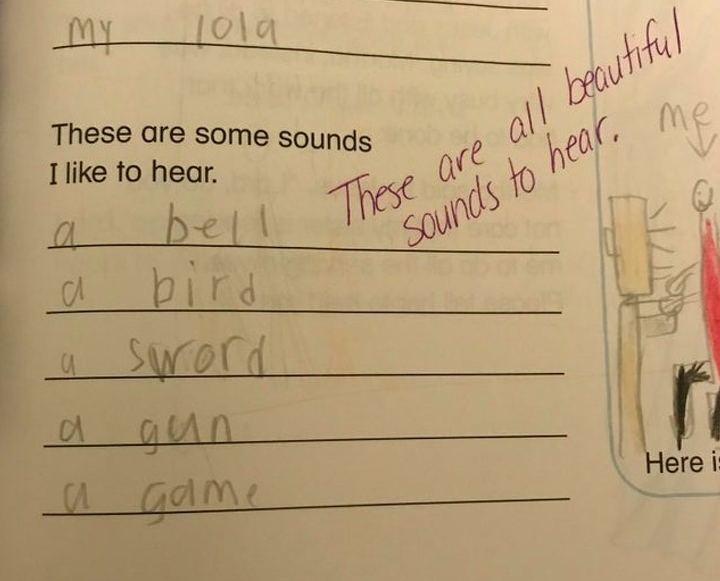 my lola
These are some sounds
I like to hear.
These are all beautiful
sounds to hear.
me
a bell
a bird
a sword
a gun
a game
Here is